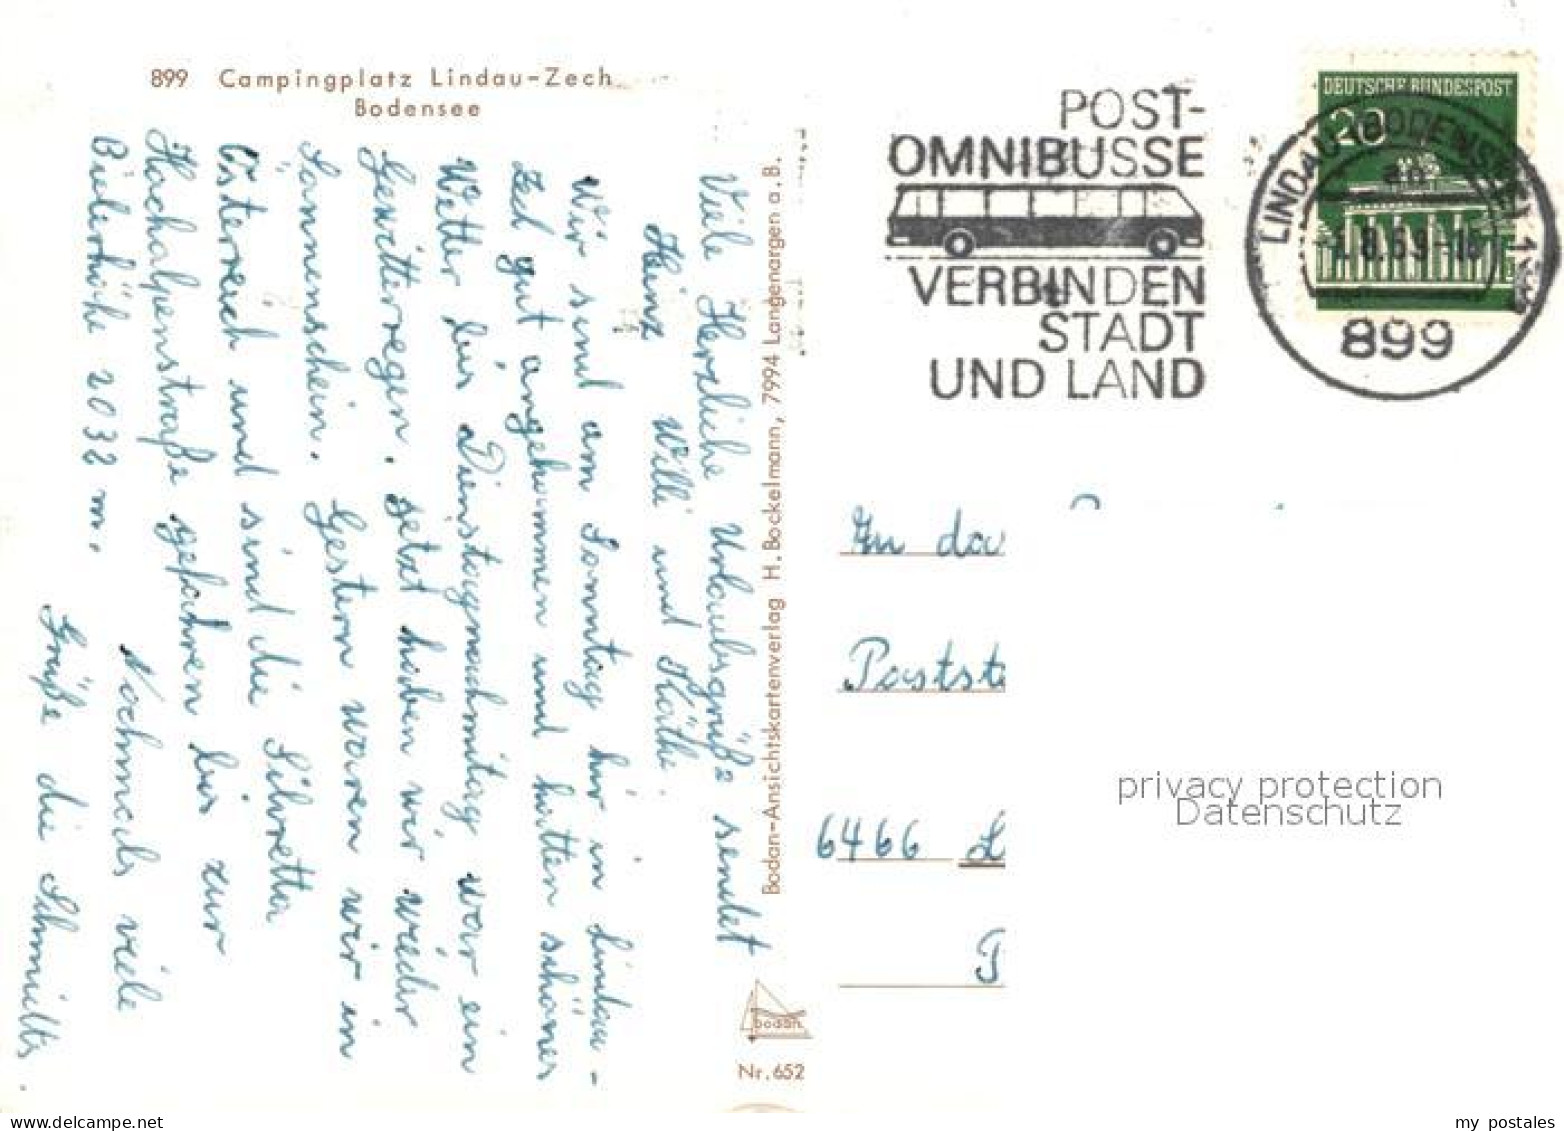 899 Campingplatz Lindau-Zech
Bodensee
Viele Herzliche Urlaubsgrüße sendet
Heinz Willi und Käthi.
Wir sind am Sonntag hir in Lindau-
Zech gut angekommen und hatten schönes
Wetter bis Dienstagnachmittag war ein
Gewitterregen. jetzt haben wir wieder
Sonnenschein. Gestern waren wir in
Österreich und sind die Silvretta
Hochalpenstraße gefahren bis zur
Bielerhöhe 2032 m.
Nochmals viele
Grüße die Schmidts.
Bodan-Ansichtskartenverlag H. Bockelmann, 7994 Langenargen a. B.
bodan
Nr. 652
POST-
OMNIBUSSE
VERBINDEN
STADT
UND LAND
DEUTSCHE BUNDESPOST
20
LINDAU (BODENSEE) 1
an
8.69-16
899
An da
Postst
6466 L
privacy protection
Datenschutz
www.delcampe.net
my_postales